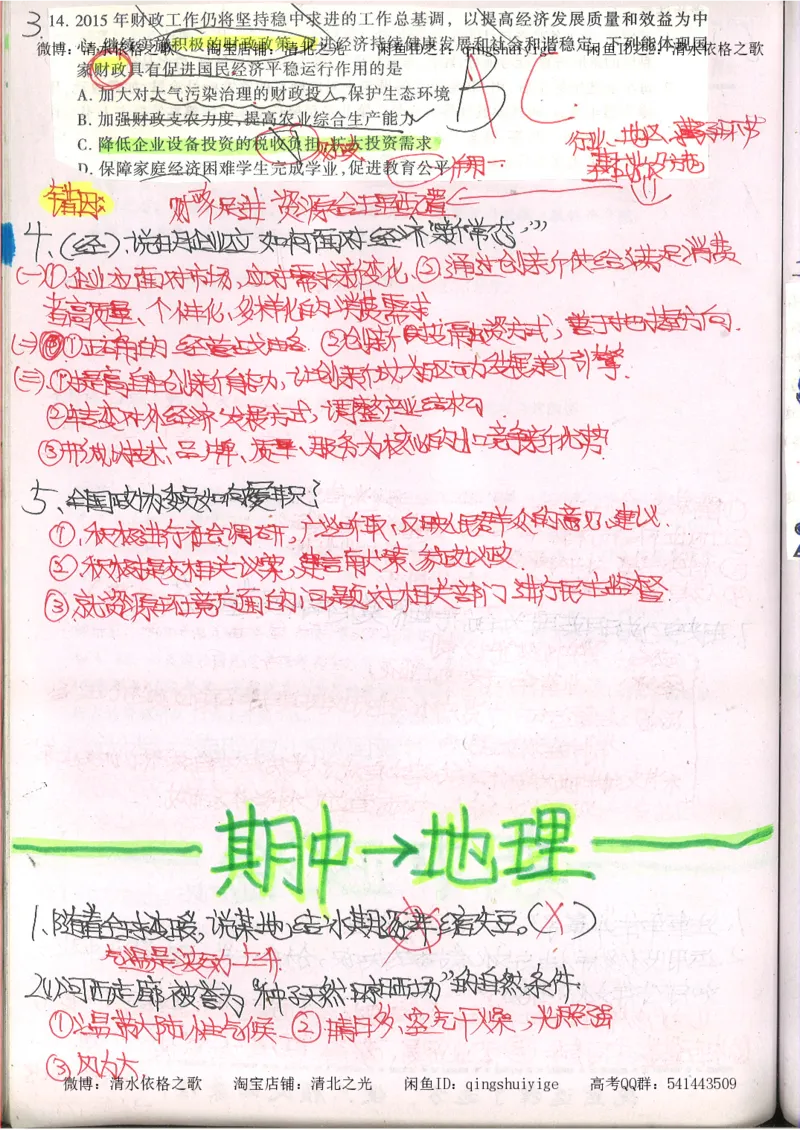 3. 14. 2015年财政工作仍将坚持稳中求进的工作总基调，以提高经济发展质量和效益为中
心，继续实施积极的财政政策，促进经济持续健康发展和社会和谐稳定。下列能体现国
微博：清水依格之歌 淘宝店铺：清北之光 闲鱼ID之：qingshuiyige 闲鱼ID之：清水依格之歌
家财政具有促进国民经济平稳运行作用的是
A. 加大对大气污染治理的财政投入，保护生态环境
B. 加强财政支农力度，提高农业综合生产能力
C. 降低企业设备投资的税收负担，扩大投资需求
D. 保障家庭经济困难学生完成学业，促进教育公平
B C
行业、地区、
错因：
财政促进资源合理配置
4.（经）.说明企业应如何面对经济“新常态”
(一)①企业应面对市场，应对需求新变化，②通过创新供给满足消费
者高质量、个性化、多样化的消费需求
(二)①正确的经营战略 ②创新
(三).①提高自主创新能力，让创新成为驱动发展新引擎.
②转变对外经济发展方式，调整产业结构
③形成以技术、品牌、质量、服务为核心的出口竞争新优势
5.全国政协委员如何履职？
①.积极进行社会调研，广泛听取、反映人民群众的意见、建议.
②.积极提交相关议案，建言献策、参政议政.
③.就资源环境方面的问题对相关部门进行民主监督.
期中→地理
1.随着全球变暖，说某地结冰期逐年缩短。(X)
气温是波动上升
2.河西走廊被誉为“种子天然晒场”的自然条件.
①温带大陆性气候 ②晴日多、空气干燥，光照强
③风力大
微博：清水依格之歌 淘宝店铺：清北之光 闲鱼ID：qingshuiyige 高考QQ群：541443509